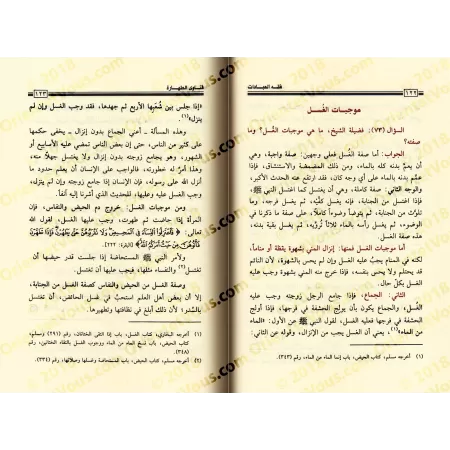 ١٢٢
فقه العبادات
موجبات الغُسل
السؤال (٧٣): فضيلة الشيخ، ما هي موجبات الغُسل؟ وما
صفته؟
الجواب: أما صفة الغُسل فعلى وجهين: صفة واجبة، وهي
أن يعمَّ بدنه كله بالماء، ومن ذلك المضمضة والاستنشاق، فإذا
عمم بدنه بالماء على أي وجه كان، فقد ارتفع عنه الحدث الأكبر،
والوجه الثاني: صفة كاملة، وهي أن يغتسل كما اغتسل النبي ﷺ
فإذا اغتسل من الجنابة، فإنه يغسل كفيه، ثم يغسل فرجه، وما
تلوث من الجنابة، ثم يتوضأ وضوءاً كاملاً، على صفة ما ذكرنا في
الوضوء، ثم يغسل رأسه بالماء ثلاثاً ترويه، ثم يغسل بقية بدنه،
هذه صفة الغسل.
وأما موجبات الغسل فمنها: إنزال المني بشهوة يقظة أو مناماً،
لكنه في المنام يجب عليه الغسل وإن لم يحس بالشهوة، لأن النائم
قد يحتلم ولا يحس بنفسه، فإذا خرج منه المني بشهوة، وجب عليه
الغسل بكل حال.
الثاني: الجماع، فإذا جامع الرجل زوجته وجب عليه
الغُسل، والجماع يكون بأن يولج الحشفة في فرجها، فإذا أولج
الحشفة في فرجها فعليه الغسل، لقول النبي ﷺ عن الأول: «الماء
من الماء»(١)، يعني أن الغسل يجب من الإنزال، وقوله عن الثاني:
(١) أخرجه مسلم، كتاب الحيض، باب إنما الماء من الماء، رقم (٣٤٣).
فتاوى الطهارة
١٢٣
«إذا جلس بين شُعبها الأربع ثم جهدها، فقد وجب الغسل وإن لم
ينزل»(١).
وهذه المسألة ـ أعني الجماع بدون إنزال ـ يخفى حكمها
على كثير من الناس، حتى إن بعض الناس تمضي عليه الأسابيع أو
الشهور، وهو يجامع زوجته بدون إنزال ولا يغتسل جهلاً منه،
وهذا أمرٌ له خطورته، فالواجب على الإنسان أن يعلم حدود ما
أنزل الله على رسوله، فإن الإنسان إذا جامع زوجته وإن لم ينزل،
وجب الغسل عليه وعليها، للحديث الذي أشرنا إليه آنفاً.
ومن موجبات الغسل: خروج دم الحيض والنفاس، فإن
المرأة إذا حاضت ثم طهرت، وجب عليها الغسل، لقوله
تعالى: ﴿فَاعْتَزِلُوا النِّسَاءَ فِي الْمَحِيضِ وَلَا تَقْرَبُوهُنَّ حَتَّى يَطْهُرْنَ فَإِذَا تَطَهَّرْنَ
فَأْتُوهُنَّ مِنْ حَيْثُ أَمَرَكُمُ اللَّهُ﴾ [البقرة: ٢٢٢].
ولأمر النبي ﷺ المستحاضة إذا جلست قدر حيضها أن
تغتسل(٢)، والنفساء مثلها، فيجب عليها أن تغتسل.
وصفة الغسل من الحيض والنفاس كصفة الغسل من الجنابة،
إلا أن بعض أهل العلم استحبَّ في غسل الحائض، أن تغتسل
بالسدر، لأن ذلك أبلغ في نظافتها وتطهيرها.
(١) أخرجه البخاري، كتاب الغسل، باب إذا التقى الختانان، رقم (٢٩١) ومسلم،
كتاب الحيض، باب نسخ الماء من الماء ووجوب الغسل بالتقاء الختانين، رقم
(٣٤٨)
(٢) أخرجه مسلم، كتاب الحيض، باب المستحاضة وغسلها وصلاتها، رقم (٣٣٤).